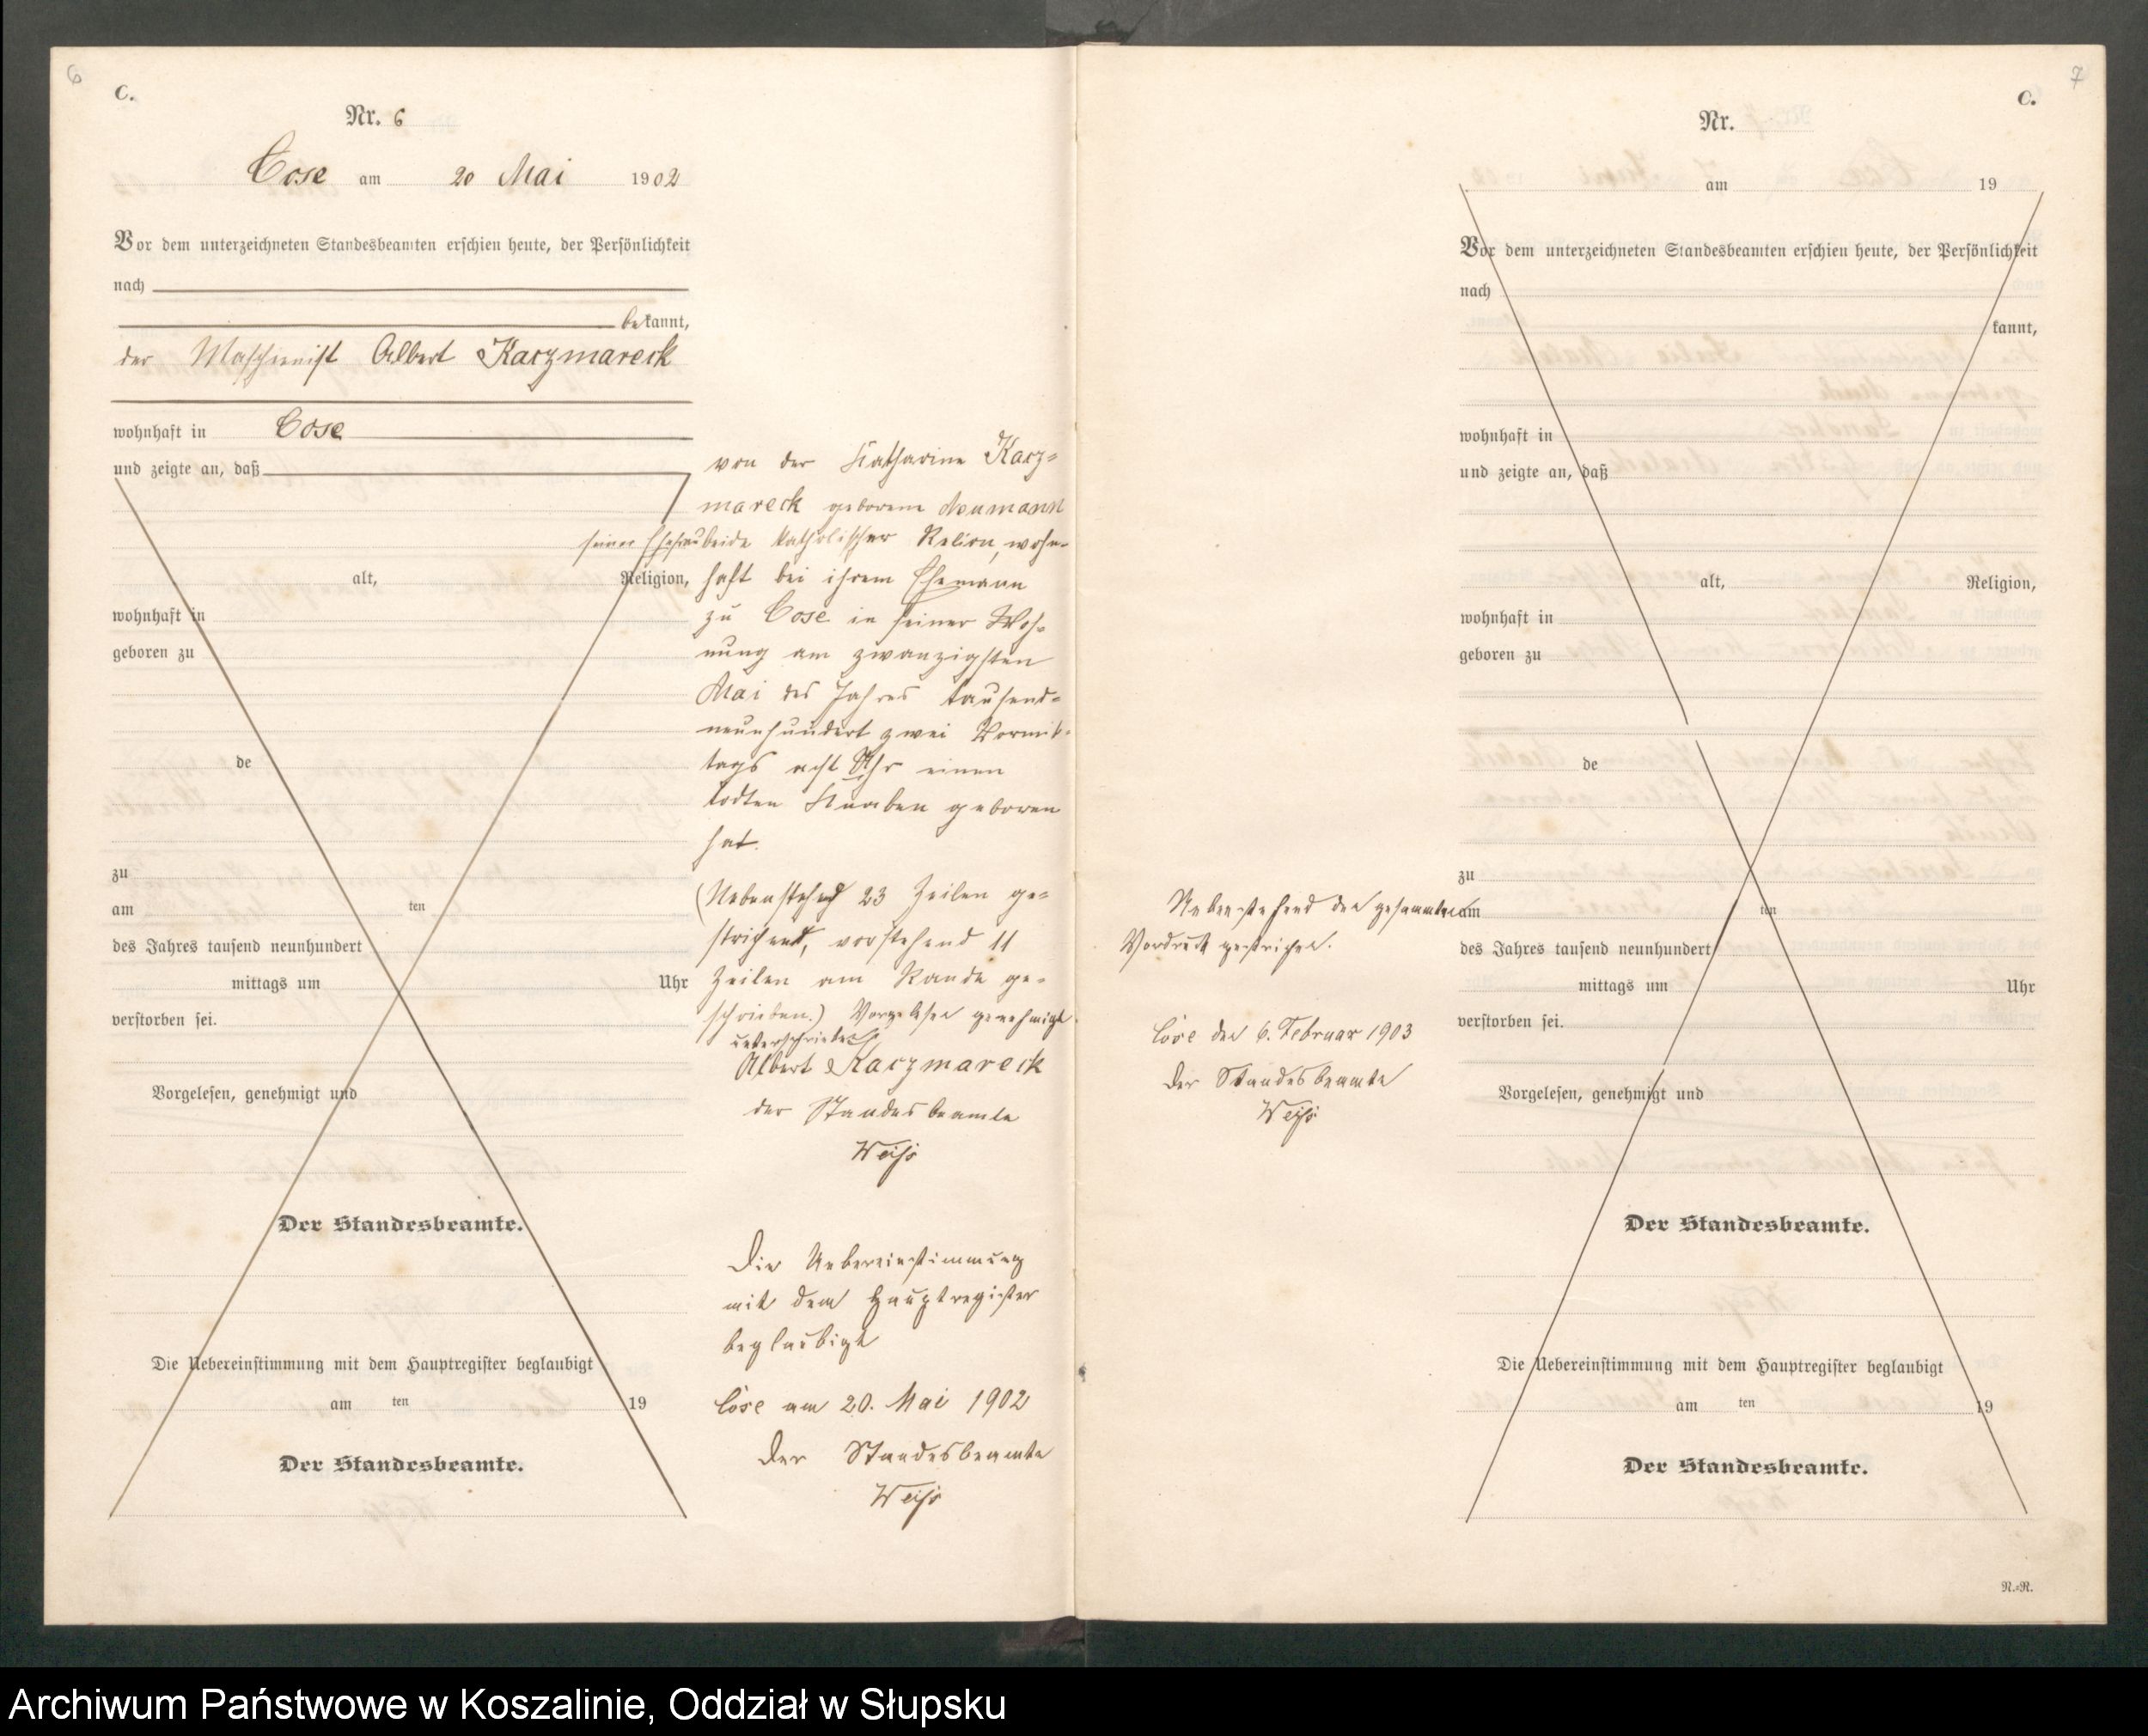 6
C.
Nr. 6
Cose am 20 Mai 1902
Vor dem unterzeichneten Standesbeamten erschien heute, der Persönlichkeit
nach
bekannt,
der Maschinist Albert Kaczmareck
wohnhaft in Cose
und zeigte an, daß
alt, Religion,
wohnhaft in
geboren zu
de
zu
am ten
des Jahres tausend neunhundert
mittags um Uhr
verstorben sei.
Vorgelesen, genehmigt und
Der Standesbeamte.
Die Uebereinstimmung mit dem Hauptregister beglaubigt
am ten 19
Der Standesbeamte.
von der Katharine Kacz=
mareck geborene Neumann
seiner Ehefrau beide katholischer Relion, wohn-
haft bei ihrem Ehemann
zu Cose in seiner Woh-
nung am zwanzigsten
Mai des Jahres tausend=
neunhundert zwei Vormit-
tags acht Uhr einen
todten Knaben geboren
hat.
(Nebenstehend 23 Zeilen ge=
strichen, vorstehend 11
Zeilen am Rande ge-
schrieben.) Vorgelesen genehmigt
unterschrieben
Albert Kaczmareck
der Standesbeamte
Weiß
Die Uebereinstimmung
mit dem Hauptregister
beglaubigt
Cose am 20. Mai 1902
Der Standesbeamte
Weiß
7
C.
Nr.
am 19
Vor dem unterzeichneten Standesbeamten erschien heute, der Persönlichkeit
nach
kannt,
wohnhaft in
und zeigte an, daß
alt, Religion,
wohnhaft in
geboren zu
de
zu
am ten
des Jahres tausend neunhundert
mittags um Uhr
verstorben sei.
Vorgelesen, genehmigt und
Der Standesbeamte.
Die Uebereinstimmung mit dem Hauptregister beglaubigt
am ten 19
Der Standesbeamte.
R.=R.
Nebenstehend den gesammten
Vordruck gestrichen.
Cose den 6. Februar 1903
Der Standesbeamte
Weiß
Archiwum Państwowe w Koszalinie, Oddział w Słupsku